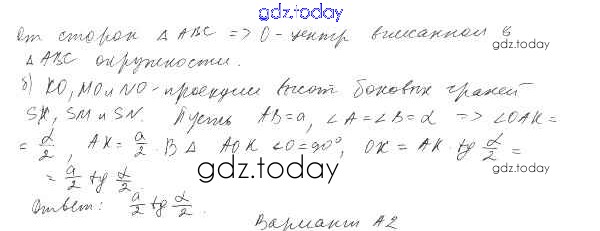 gdz.today
от сторон △ABC => O - центр вписанной в
gdz.today
△ABC окружности.
б) KO, MO и NO - проекции высот боковых граней
SK, SM и SN. Пусть AB=a, ∠A=∠B=α => ∠OAK=
gdz.today
= α/2, AK = a/2. В △ AOK ∠O=90°, OK = AK · tg α/2 =
= a/2 tg α/2
gdz.today
Ответ: a/2 tg α/2.
gdz.today
Вариант А2